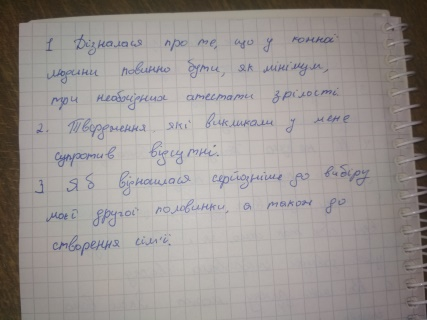 1 Дізналася про те, що у кожної
людини повинно бути, як мінімум,
три необхідних атестати зрілості
2. Твердження, які викликали у мене
супротив відсутні.
3 Я б відносилася серйозніше до вибіру
моєї другої половинки, а також до
створення сім'ї.